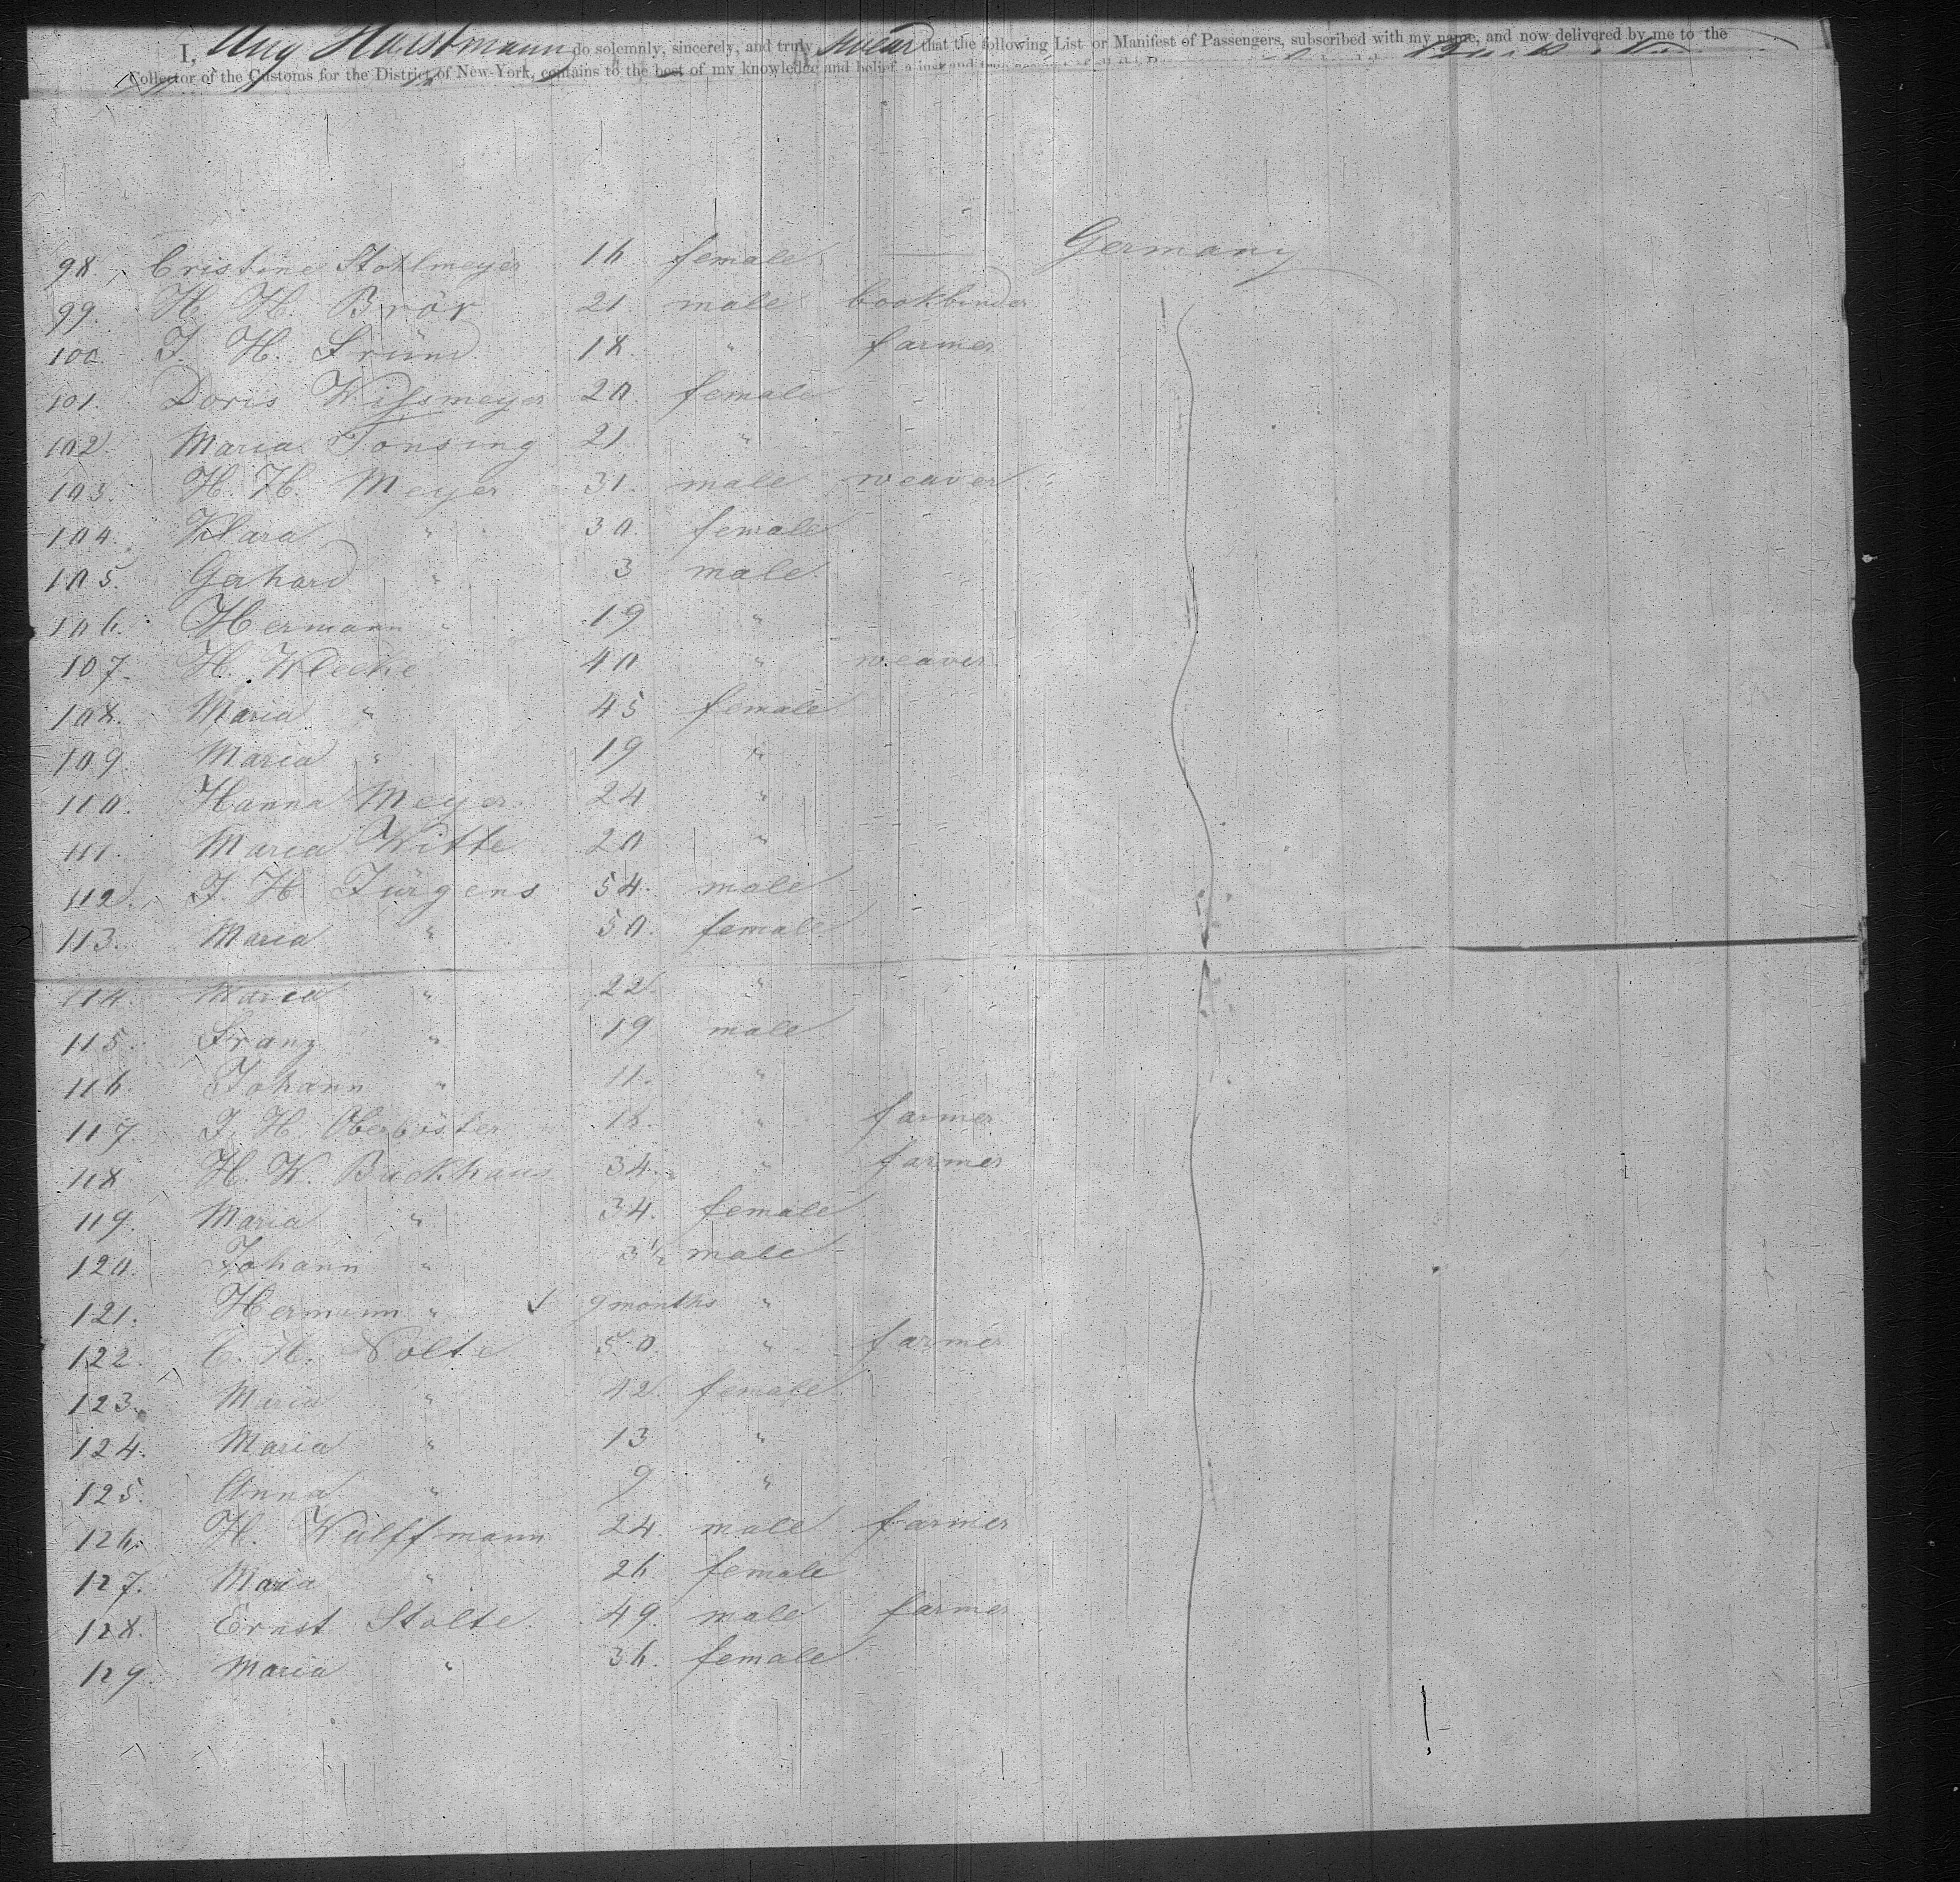 I, Aug Horstmann do solemnly, sincerely, and truly swear that the following List or Manifest of Passengers, subscribed with my name, and now delivered by me to the
Collector of the Customs for the District of New-York, contains to the best of my knowledge and belief a just and true
Germany
98. Cristine Stohlmeyer 16 female
99. H. H. Brör 21 male bookbinder
100. J. H. Fründ 18. " farmer
101. Doris Wissmeyer 20. female
102. Maria Tonsing 21 "
103. H. H. Meyer 31. male weaver
104. Klara " 30. female
105. Gerhard " 3 male
106. Hermann " 19 "
107. H. Wlecke 40 " weaver
108. Maria " 45 female
109. Maria " 19 "
110. Hanna Meyer 24 "
111. Maria Witte 20 "
112. J. H. Jürgens 54. male
113. Maria " 50. female
114. Maria " 22. "
115. Franz " 19 male
116. Johann " 11. "
117. J. H. 18. " farmer
118 H. W. Buckhaus 34. " farmer
119. Maria " 34. female
120. Johann " 3 1/2 male
121. Hermann " 9 months "
122. C. H. Nolte 50. " farmer
123. Maria " 42. female
124. Maria " 13 "
125. Anna " 9 "
126. H. Wulffmann 24. male farmer
127. Maria " 26 female
128. Ernst Stolte 49. male farmer
129. Maria " 36. female